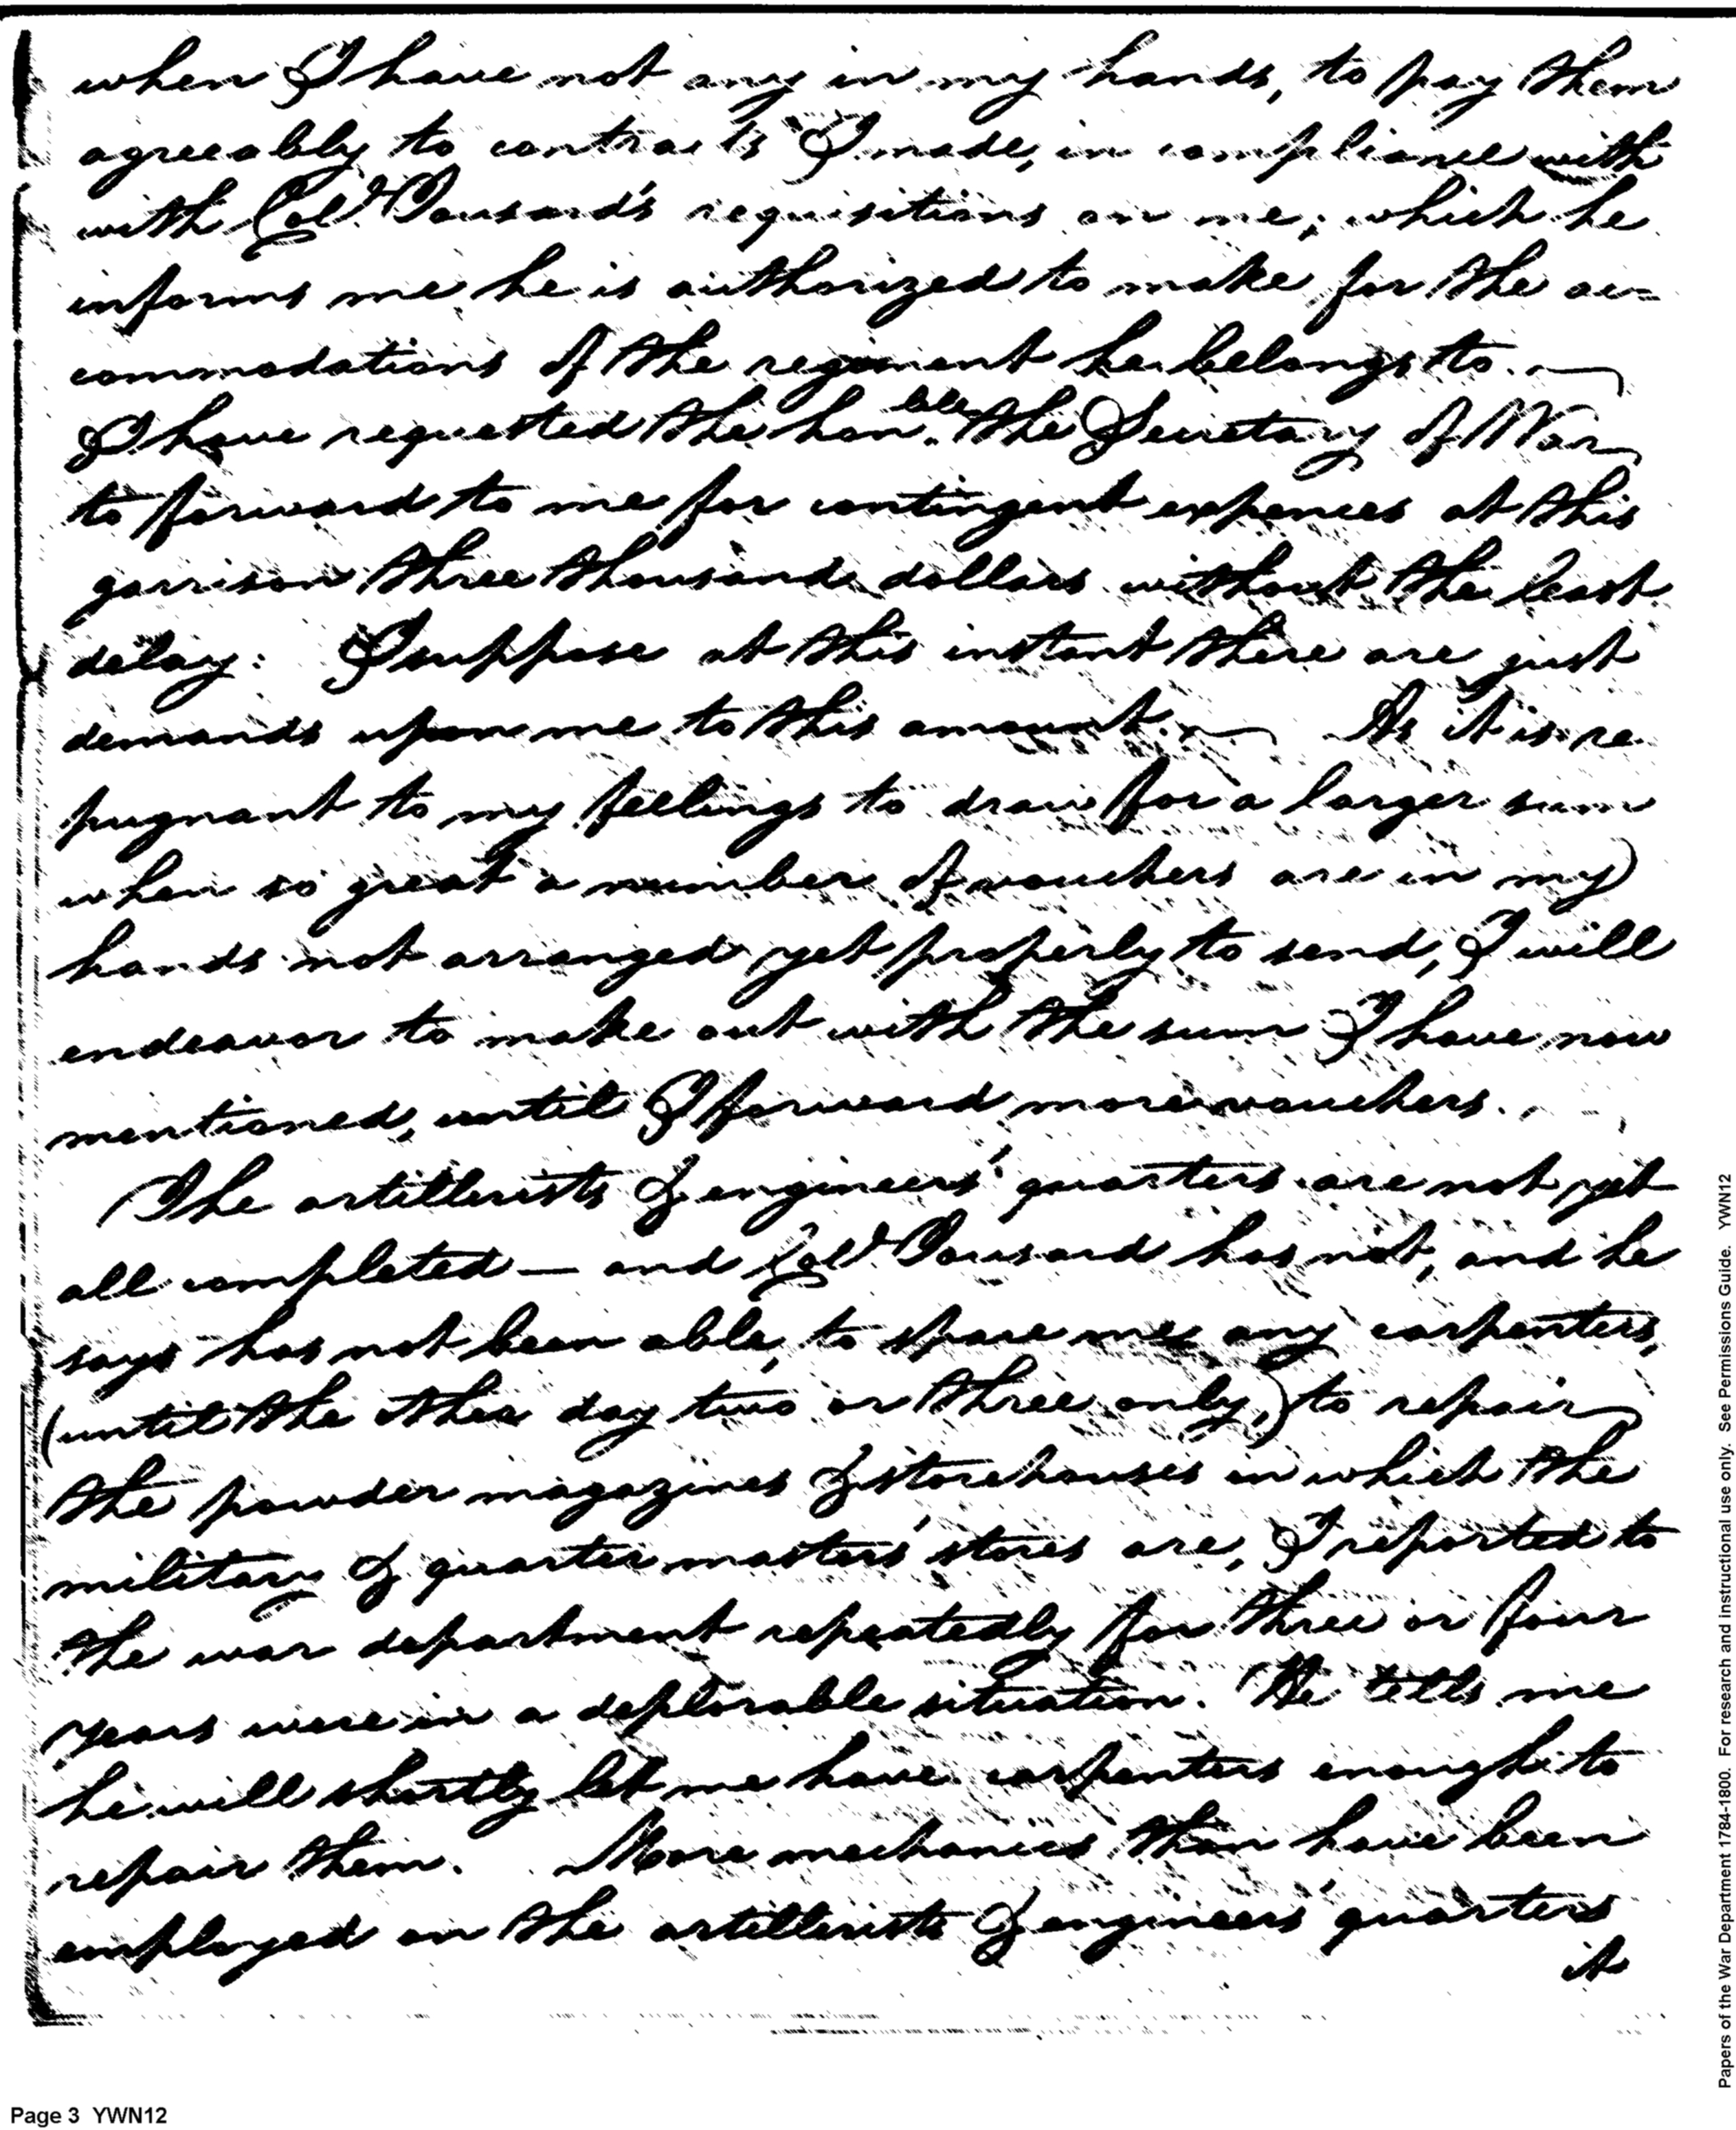 when I have not any in my hands, to pay them
agreeably to contracts I made, in compliance with
with Col.º Tousard's requisitions on me; which he
informs me he is authorized to make for the ac=
commodations of the regiment he belongs to.
I have requested the hon.ble the Secretary of War
to forward to me for contingent expences at this
garrison three thousand dollars without the least
delay: I suppose at this instant there are just
demands upon me to this amount. As it is re
pugnant to my feelings to draw for a larger sum
when so great a number of vouchers are in my
hands not arranged yet properly to send, I will
endeavor to make out with the sum I have now
mentioned, until I forward more vouchers.
The artillerists & engineers' quarters are not yet
all completed — and Col.º Tousard has not, and he
says has not been able, to spare me any carpenters,
(until the other day two or three only,) to repair
the powder magazines & storehouses in which the
military & quarter masters' stores are, I reported to
the war department repeatedly for three or four
years were in a deplorable situation. He tells me
he will shortly let me have carpenters enough to
repair them. More mechanics than have been
employed on the artillerists & engineers' quarters
it
Page 3 YWN12
Papers of the War Department 1784-1800. For research and instructional use only. See Permissions Guide. YWN12